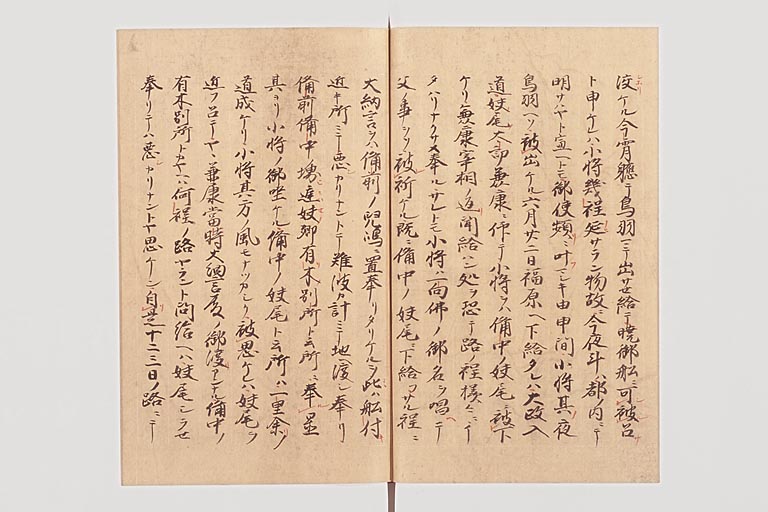 泣ケル今宵軈テ鳥羽ニテ出サセ給テ暁御船ニ可被召
ト申ケレハ小将幾程延サラン物故ニ今夜斗ハ都ノ内ニテ
明サハヤト宣ヘトモ御使頻ニ叶マシキ由申間小将其夜
鳥羽ヘソ被出ケル六月廿二日福原ヘ下給タレハ大政入
道妹尾大郎兼康ニ仰テ小将ヲハ備中ノ妹尾ニ被下
ケリ兼康宰相ノ返聞給ハン処ヲ恐テ路ノ程様々ニ
タハリナクサメ奉ルサレトモ小将ハ一向佛ノ御名ヲ唱テ
父ノ事ヲソ被祈ケル既ニ備中ノ妹尾ニ下給フサル程ニ
大納言ヲハ備前ノ児嶋ニ置奉リタリケルヲ此ハ船付
近キ所ニテ悪カリナントテ難波カ計ニテ地ニ渡シ奉リ
備前備中ノ堺庭妹郷有木別所ト云所ニ奉置
其ヨリ小将ノ御坐ケル備中ノ妹尾ト云所ハ一里余ノ
道成ケリ小将其方ノ風モナツカシクヤ被思ケレハ妹尾ヲ
近ツ召テヤヽ兼康當時大納言殿ノ御渡アンナル備中ノ
有木別所トカヤハ何程ノ路ヤラント問給ヘハ妹尾シラセ
奉リテハ悪カリナントヤ思ケン自是十二三日ノ路ニテ